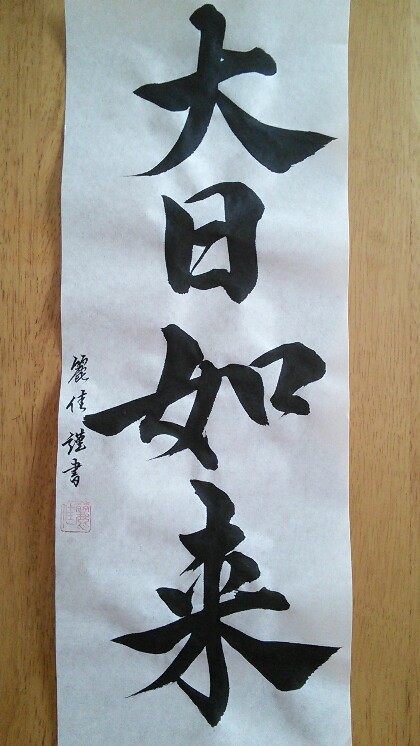 大日如来
麗佳謹書
麗佳